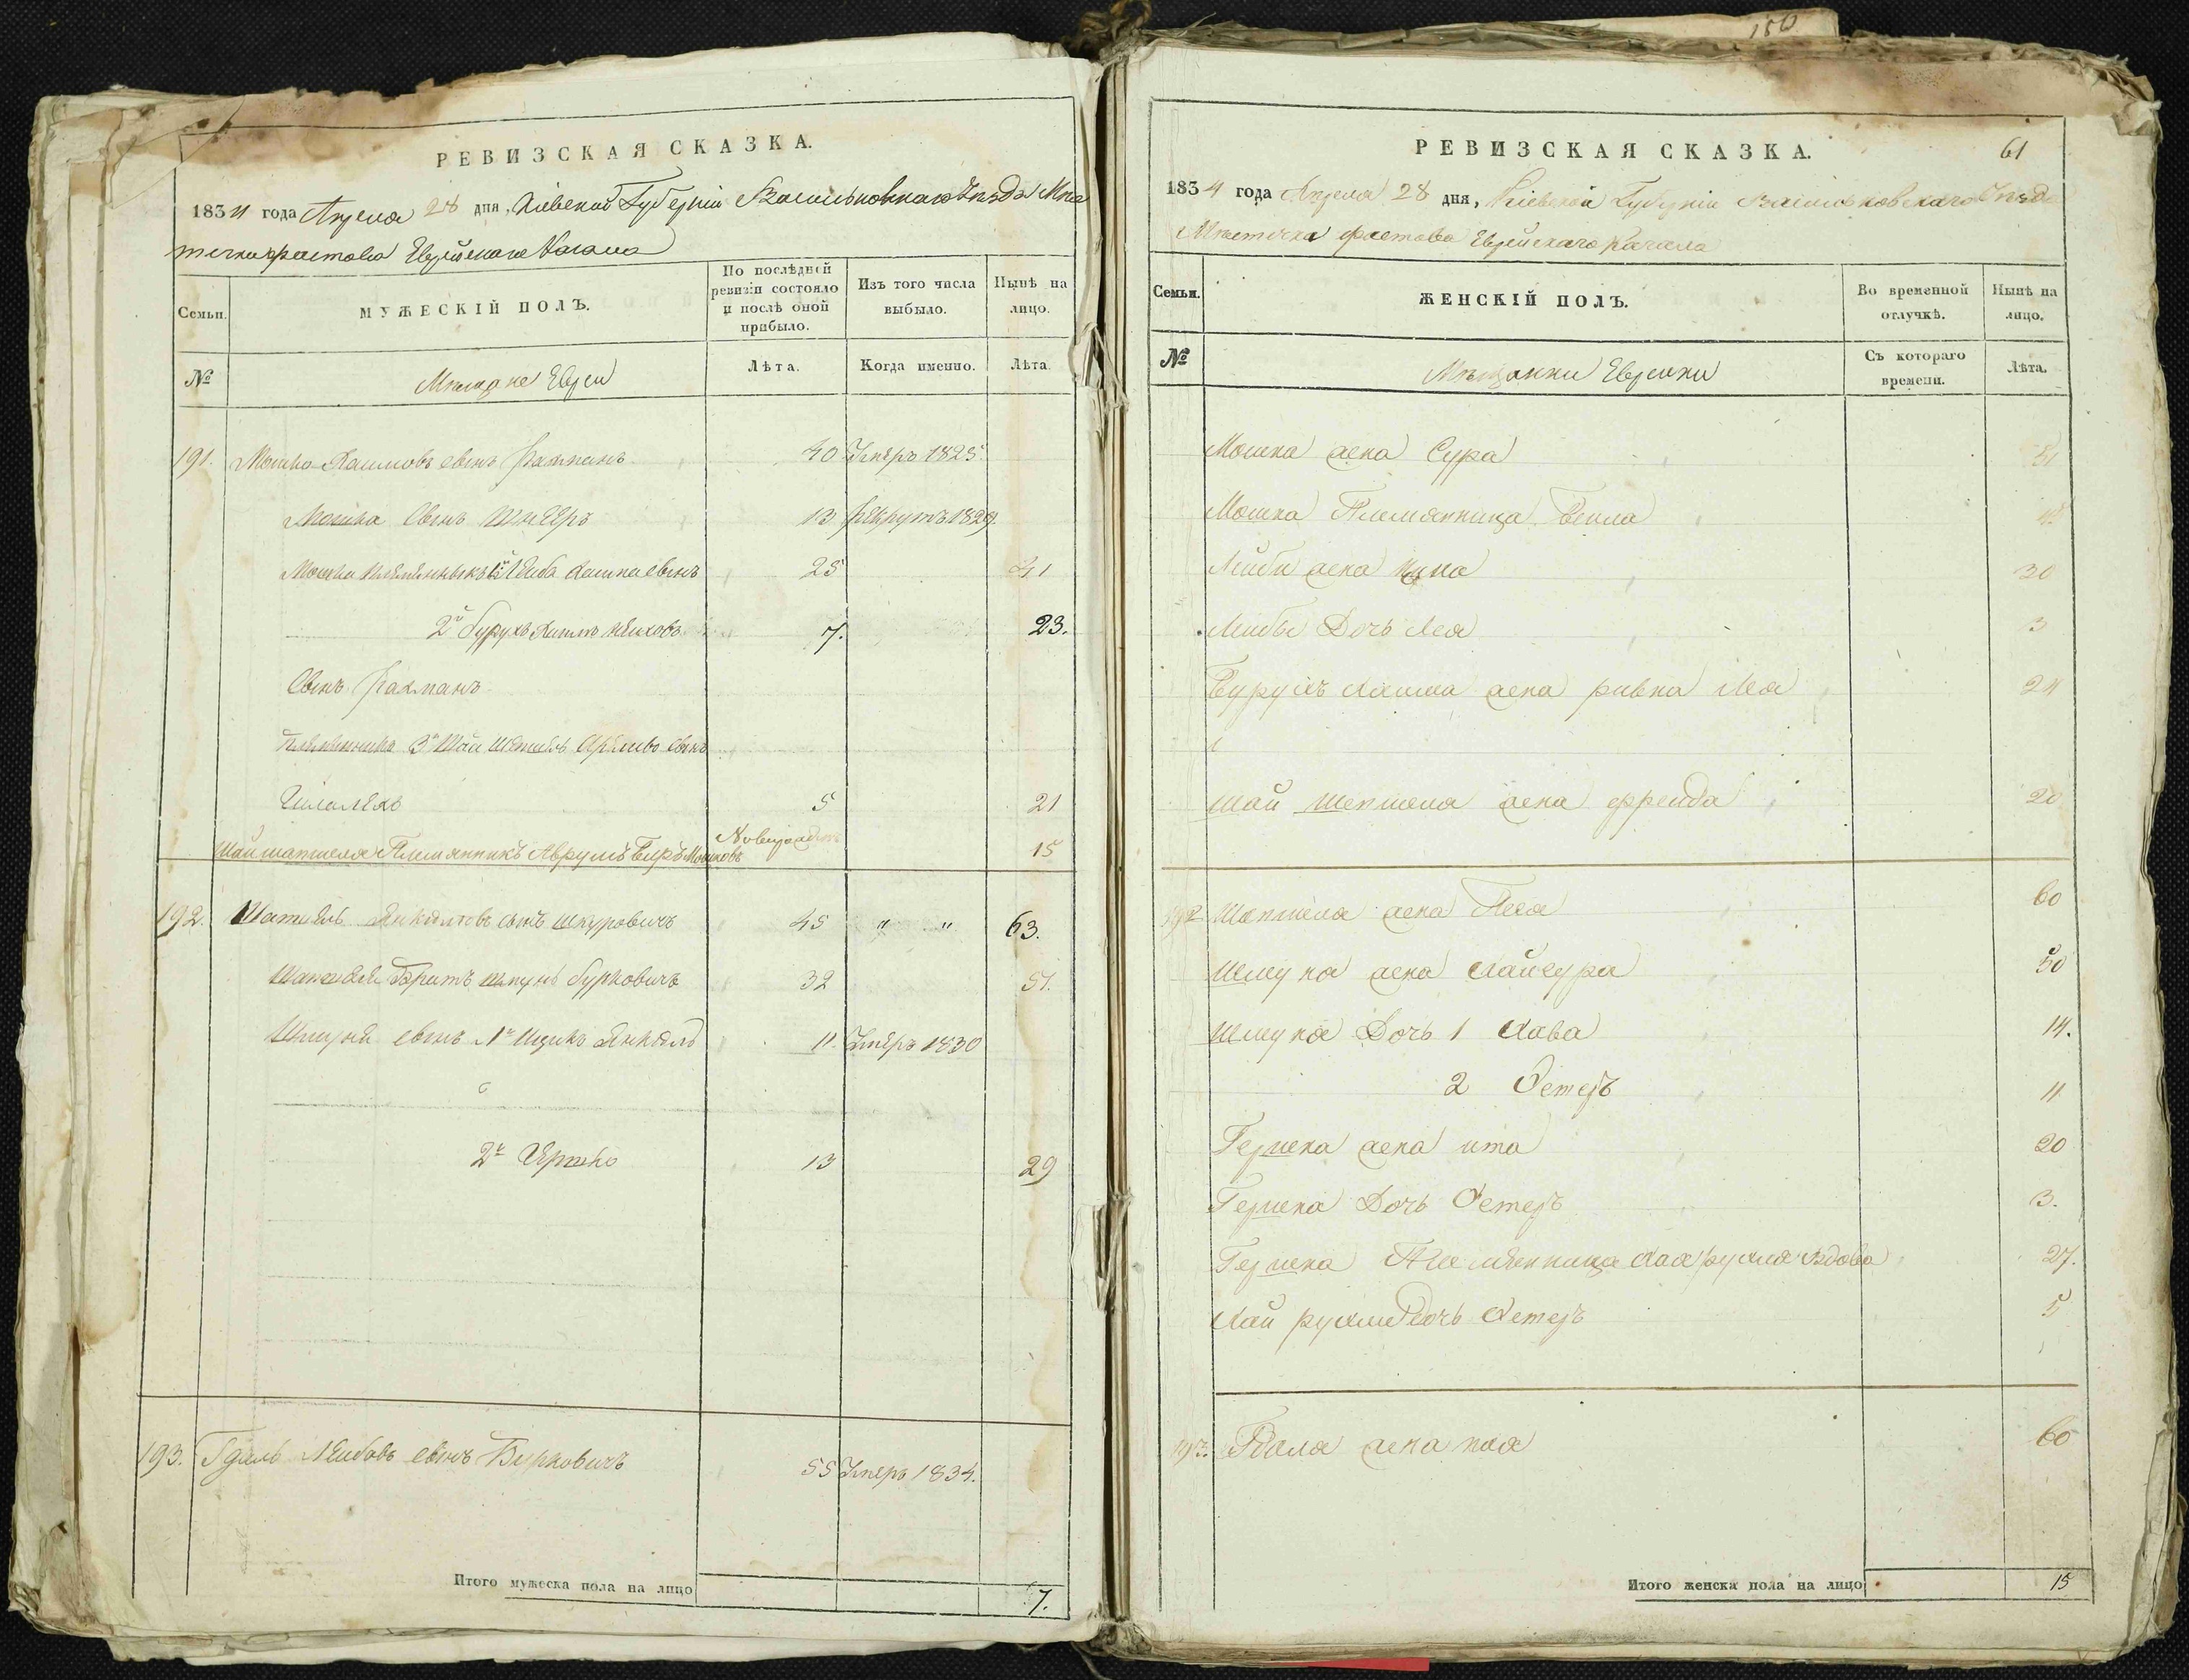 186
РЕВИЗСКАЯ СКАЗКА.
1834 года Апреля 28 дня, Кіевской Губерніи Васильковскаго Уѣзда Мѣс
течка Фастова Еврейскаго Кагала
Семьи.
МУЖЕСКІЙ ПОЛЪ.
По послѣдней ревизіи состояло и послѣ оной прибыло.
Изъ того числа выбыло.
Нынѣ на лицо.
№
Мѣщане Евреи
Лѣта.
Когда именно.
Лѣта.
191. Мошко Хаимовъ сынъ Рахманъ 40 Умеръ 1825
Мошка Сынъ Шнееръ 13 рекрутъ 1829.
Мошка племянникъ 1й Лейба Хаима сынъ 25 41
2й Бурухъ Хаимъ 7. 23.
Сынъ Рахманъ
племянникъ 3й Шаи Шепшель сынъ
5 21
Шаи шапшеля Племянникъ Аврумъ Беръ Мошковъ 15
192. Шапшель Янкелевъ сынъ Шкуровичъ 45 " " 63.
Шапшеля Братъ Шмуль Бурковичъ 32 51.
Шмуля сынъ 1й Ицикъ Янкель 11. Умеръ 1830
2й Гершко 13 29
193. Гдаль Лейбовъ сынъ Бирковичъ 55 Умеръ 1834.
Итого мужеска пола на лицо 7.
РЕВИЗСКАЯ СКАЗКА. 61
1834 года Апреля 28 дня, Кіевской Губерніи Васильковскаго Уѣзда
Мѣстечка Фастова Еврейскаго Кагала
Семьи.
ЖЕНСКІЙ ПОЛЪ.
Во временной отлучкѣ.
Нынѣ на лицо.
№
Мѣщанки Еврейки
Съ котораго времени.
Лѣта.
Мошка жена Сура 51
Мошка Племянница Бейла
Лейби жена 30
Лейбы Дочь Лея 3
Бурухъ Хаима жена ривка Лея 24
Шаи Шепшеля жена фрейда 20
192 Шепшеля жена Песя 60
Шмуля жена Хайсура 50
Шмуля Дочь 1 Хава 14.
2 Естеръ 11
Гершка жена ита 20
Гершка Дочь Естеръ 3.
Гершка Племянница Хая рухля Вдова 27.
Хаи рухли Дочь Естеръ 5
193. Гдаля жена 60
Итого женска пола на лицо 15